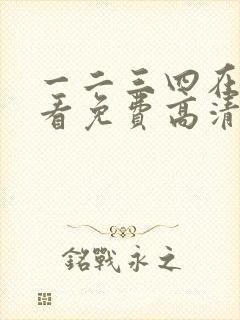 一二三四在
看免费高清
銘戰永之